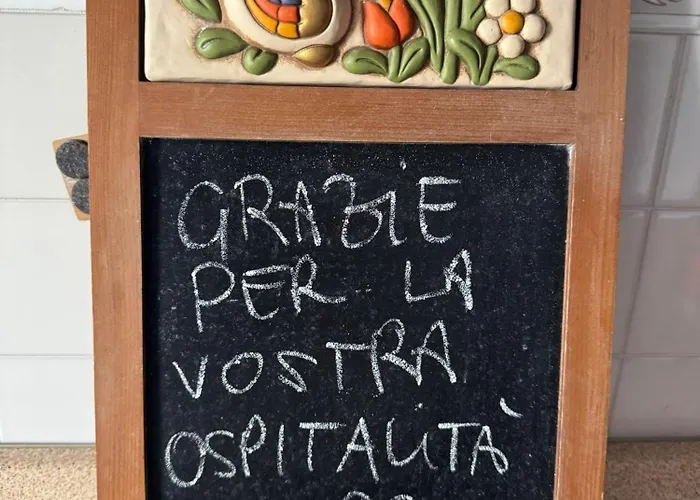 GRAZiE
PER LA
VOSTRA
OSPITALITÀ